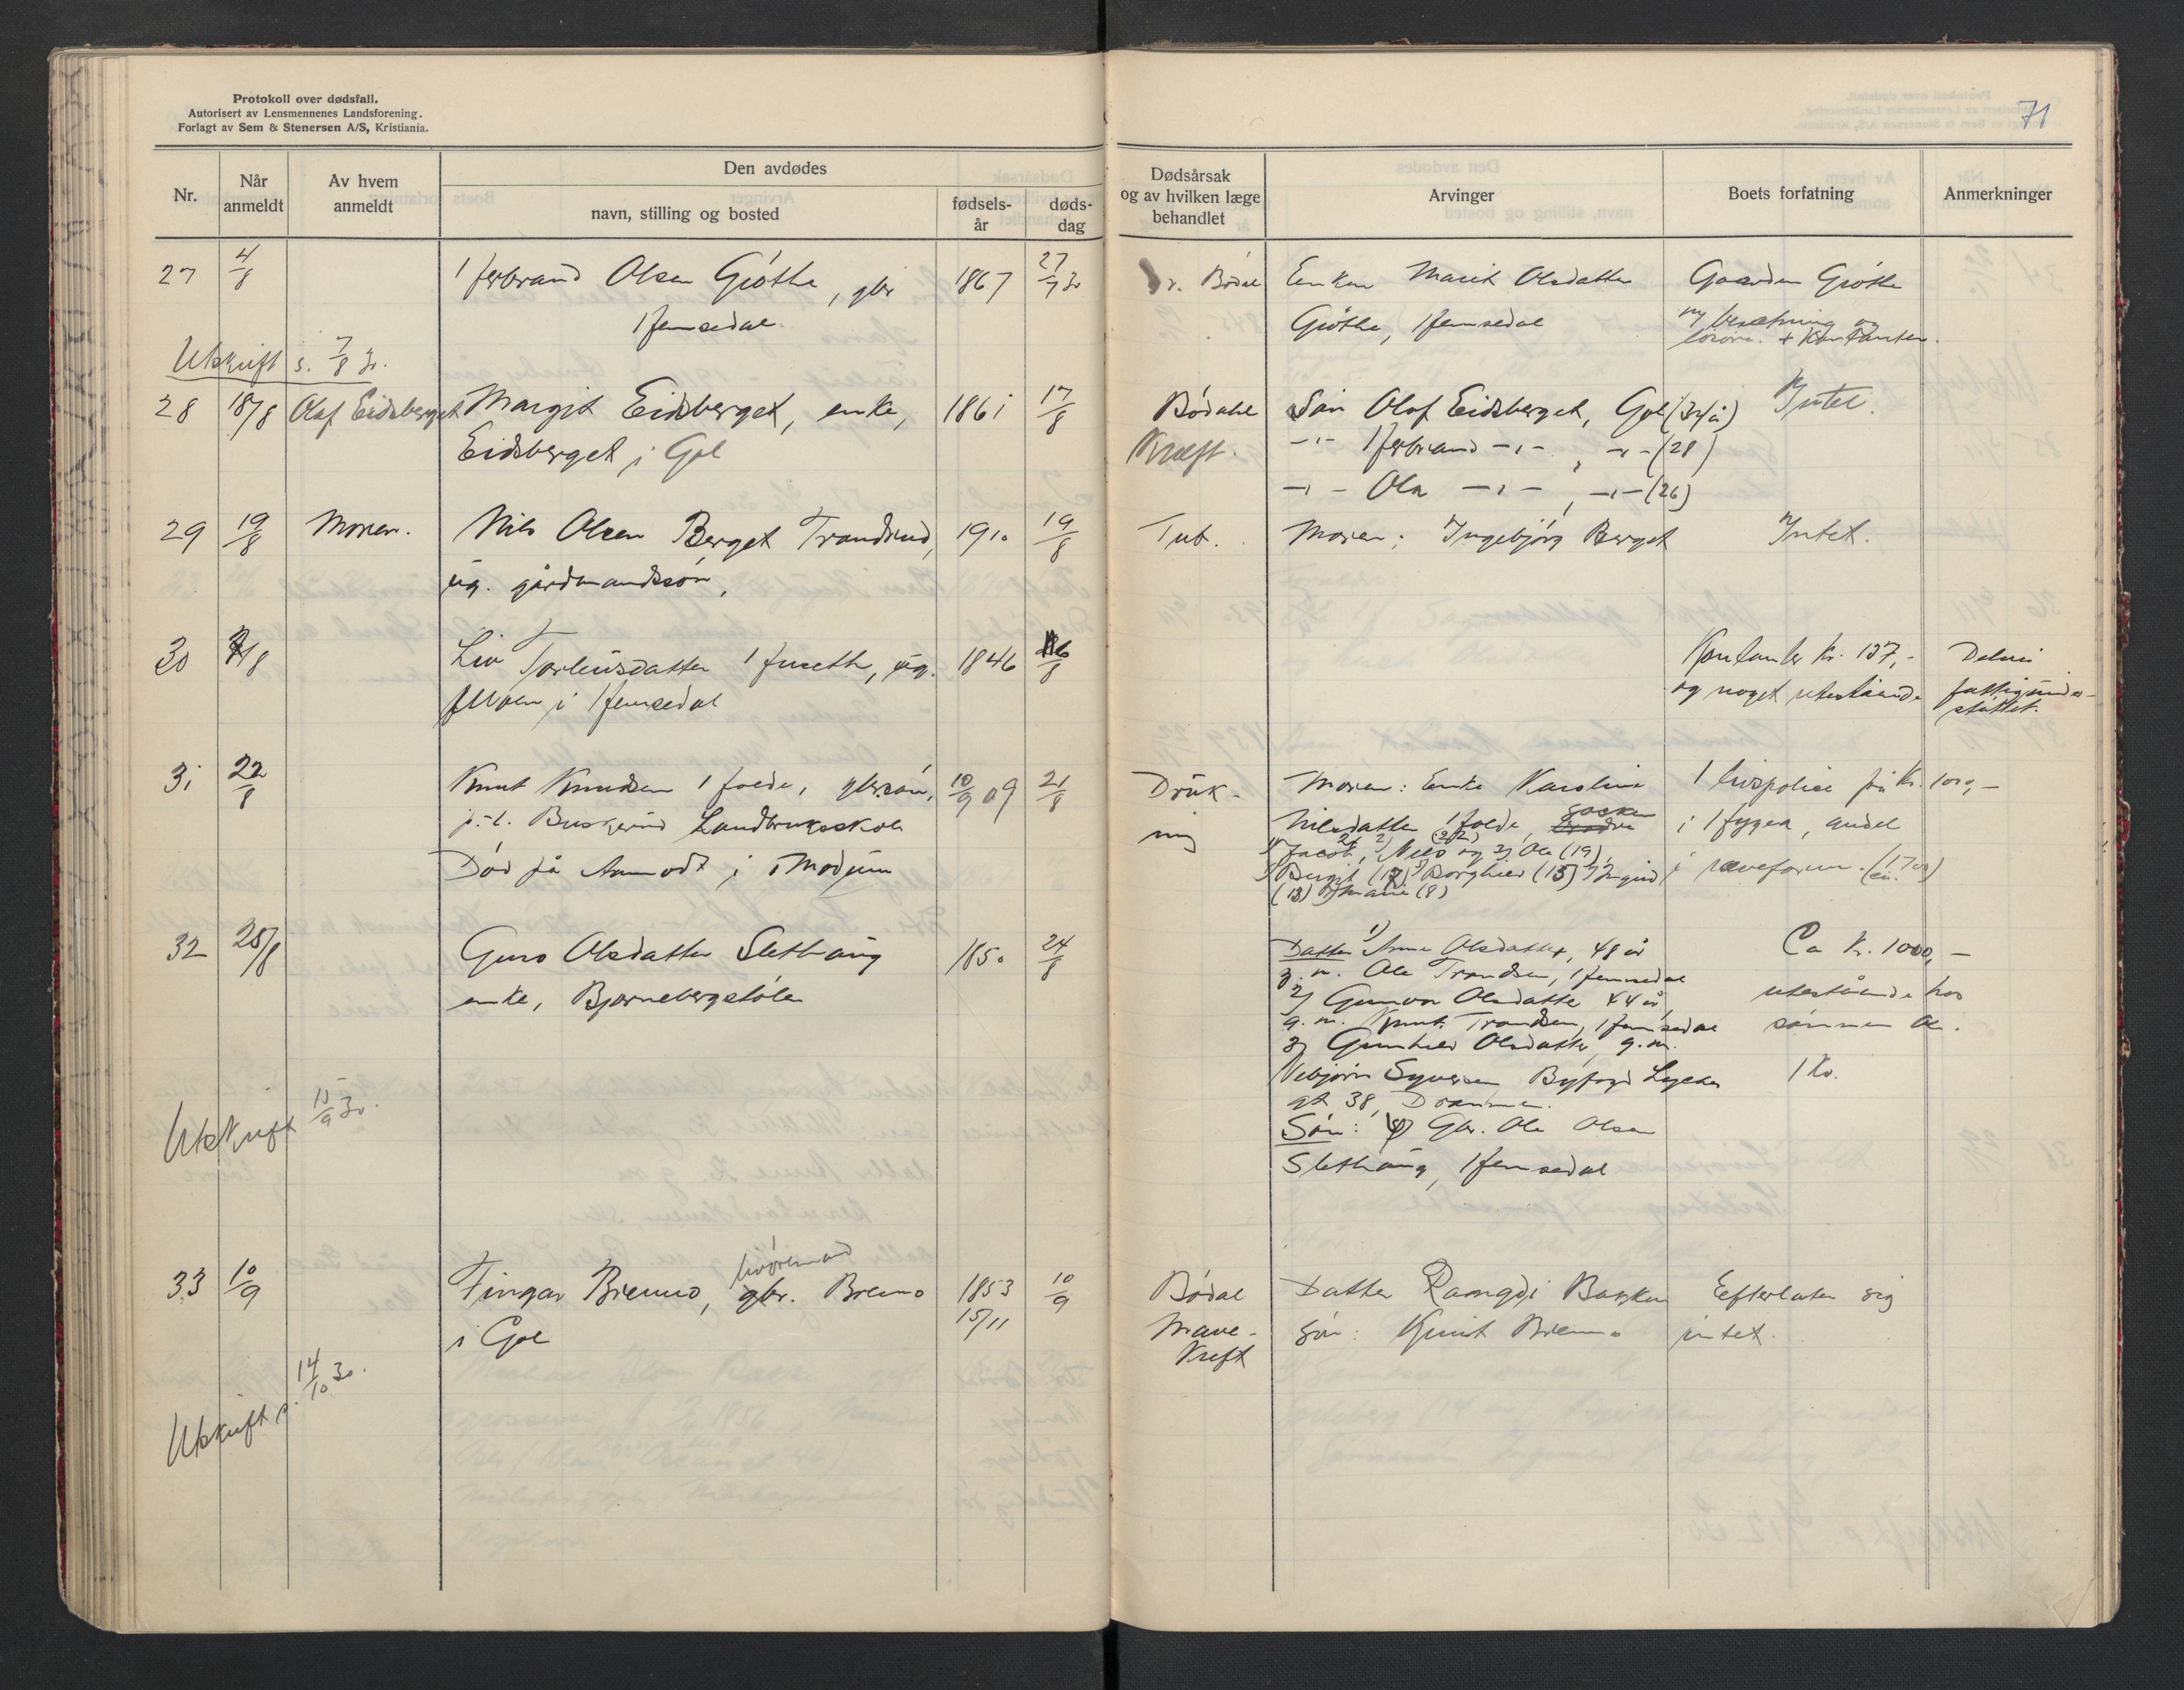 Protokoll over dødsfall.
Autorisert av Lensmennenes Landsforening.
Forlagt av Sem & Stenersen A/S, Kristiania.
71
Nr.
Når anmeldt
Av hvem anmeldt
Den avdødes
navn, stilling og bosted
fødsels-år
døds-dag
Dødsårsak og av hvilken læge behandlet
Arvinger
Boets forfatning
Anmerkninger
27 4/8 Herbrand Olsen Grøthe, gbr 1867 27/7 30 Dr. Bødal Enken Marit Olsdatter Gaarden Grøthe
Hemsedal Grøthe, Hemsedal m/ besetning og
løsøre. + Kontanter.
Utskrift s. 7/8 30.
28 18/8 Olaf Eidsberget Margit Eidsberget, enke, 1861 17/8 Bødahl Søn Olaf Eidsberget, Gol (34 år) Intet.
Eidsberget i Gol Kræft. -"- Herbrand -"-, -"- (28)
-"- Ola -"-, -"- (26)
29 19/8 Moren. Nils Olsen Berget Trandrud, 1910 19/8 Tub. Moren: Ingebjørg Berget Intet.
ug. gårdmandssøn,
30 /8 Liv Torleivsdatter Huseth, ug. 1846 16/8 Kontanter kr. 137,- Delvis
Moen i Hemsedal og noget utestående fattigunder-
støttet.
31 22/8 Knut Knudsen Holde, gbr.søn, 10/9 09 21/8 Druk- Moren: Enke Karoline 1 livspolise på kr. 1000,-
p.t. Buskerud Landbruksskole ning Nilsdatter Holde, søsken i Hygea, andel
Død på Aamodt i Modum 1) Jacob, 24 2) Nils (22) og 3) Ole (19), i rævefarm. (1700)
4) Birgit (17) 5) Borghild (15) 6) Ingrid
(13) 7) Marie (8)
32 25/8 Guro Olsdatter Slethaug 1850 24/8 Datter 1) Anne Olsdatter, 48 år Ca kr. 1000,-
enke, Bjørnebergstølen g. m. Ole Trondsen, Hemsedal
2) Gunvor Olsdatter 44 år, utestående hos
g. m. Knut Trondsen, Hemsedal sønnen Ole.
3) Gunhild Olsdatter, g. m.
Vebjørn Syversen Byfogd Lyches 1 ko.
gt. 38, Drammen.
Utskrift 15/9 30.
Søn: 4) Gbr. Ole Olsen
Slethaug, Hemsedal
33 10/9 Fingar Brenno, livøremand gbr. Brenno 1853 10/9 Bødal Datter Ramgdi Bakken Efterlater sig
i Gol 15/11 Mave- Søn: Knut Brenno intet.
kreft
Utskrift s. 14/10 30.